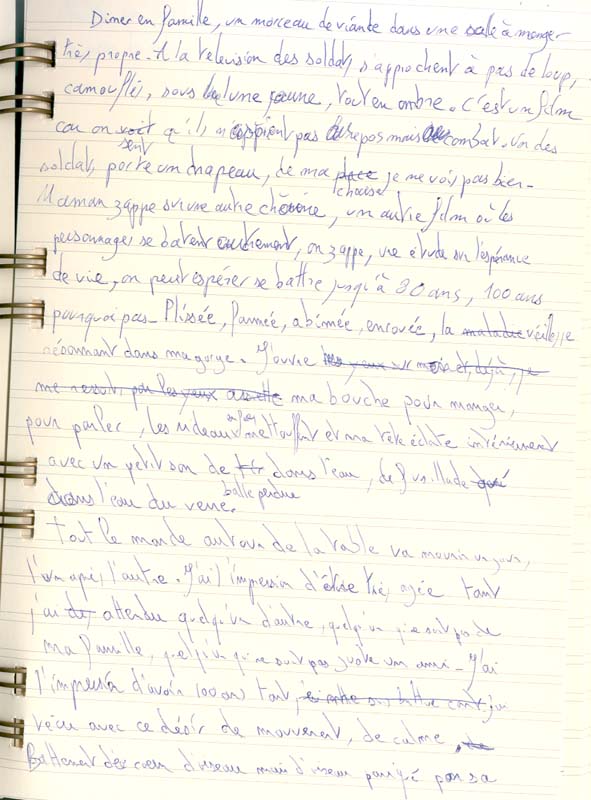 Diner en famille, un morceau de viande dans une salle à manger
très propre. A la television des soldats s'approchent à pas de loup,
camouflés, sous lune jaune, tout en ombre. C'est un film
car on sent qu'ils n'aspirent pas repos mais combat. Un des
soldats porte un chapeau, de ma chaise je ne vois pas bien.
Maman zappe sur une autre chaîne, un autre film où les
personnages se battent autrement, on zappe, une étude sur l'espérance
de vie, on peut espérer se battre jusqu'à 80 ans, 100 ans
pourquoi pas. Plissée, fannée, abimée, enrouée, la vieillesse
dans ma gorge. J'ouvre
ma bouche pour manger,
pour parler, les rideaux m'étouffent et ma tête éclate intérieurement
avec un petit son de dans l'eau, de fusillade
balle perdue
dans l'eau du verre.
Tout le monde autour de la table va mourir un jour,
l'un après l'autre. J'ai l'impression d'être très agée tant
j'ai attendu quelqu'un d'autre, quelqu'un qui ne soit pas de
ma famille, quelqu'un qui ne soit pas juste un ami. J'ai
l'impression d'avoir 100 ans tant j'ai
vécu avec ce désir de mouvement, de calme,
Battement de coeur d'oiseau mais d'oiseau par sa